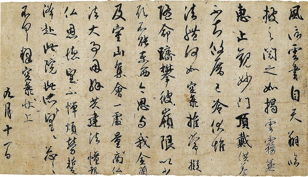 風信雲書自天翔臨
披之閲之如掲雲霧兼
恵止觀妙門頂戴供養
不知攸厝已冷伏惟
法體何如空海推常擬
随命躋攀彼嶺限以少
願不能東西今思与我金蘭
及室山集會一處量商仏
法大事因縁共建法幢報
仏恩徳望不憚煩勞蹔
降赴此院此所望々々忩々
不具釋空海状上
九月十一日